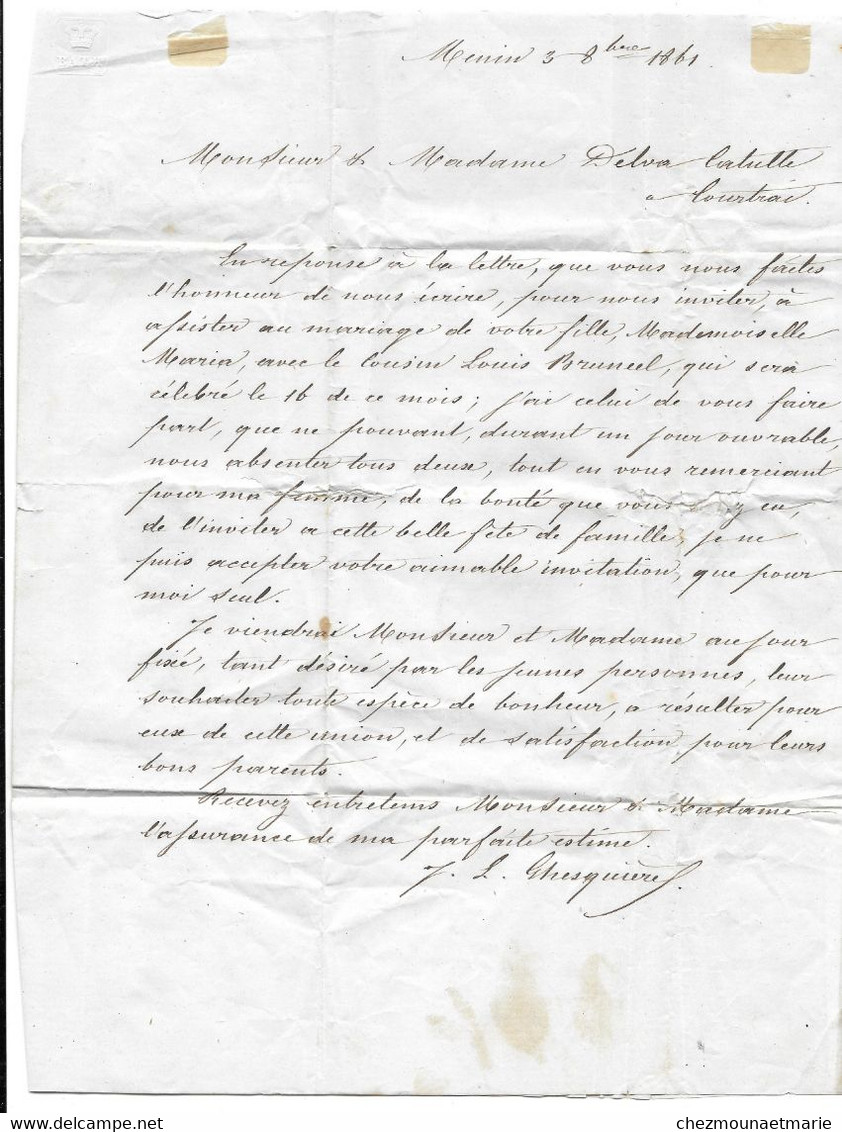 Menin 3 8bre 1861.
Monsieur & Madame Delva Catulle
a Courtrai.
En reponse à la lettre, que vous nous faites
l'honneur de nous écrire, pour nous inviter, à
assister au mariage de votre fille, Mademoiselle
Maria, avec le Cousin Louis Bruneel, qui sera
célébré le 16 de ce mois; j'ai celui de vous faire
part, que ne pouvant, durant un jour ouvrable,
nous absenter tous deux, tout en vous remerciant
pour ma femme, de la bonté que vous eu,
de l'inviter a cette belle fête de famille, je ne
puis accepter votre aimable invitation, que pour
moi seul.
Je viendrai Monsieur et Madame au jour
fixé, tant désiré par les jeunes personnes, leur
souhaiter toute espèce de bonheur, a résulter pour
eux de cette union, et de satisfaction pour leurs
bons parents.
Recevez entretems Monsieur & Madame
l'assurance de ma parfaite estime.
J. L. Ghesquière
chezmounaetmarie